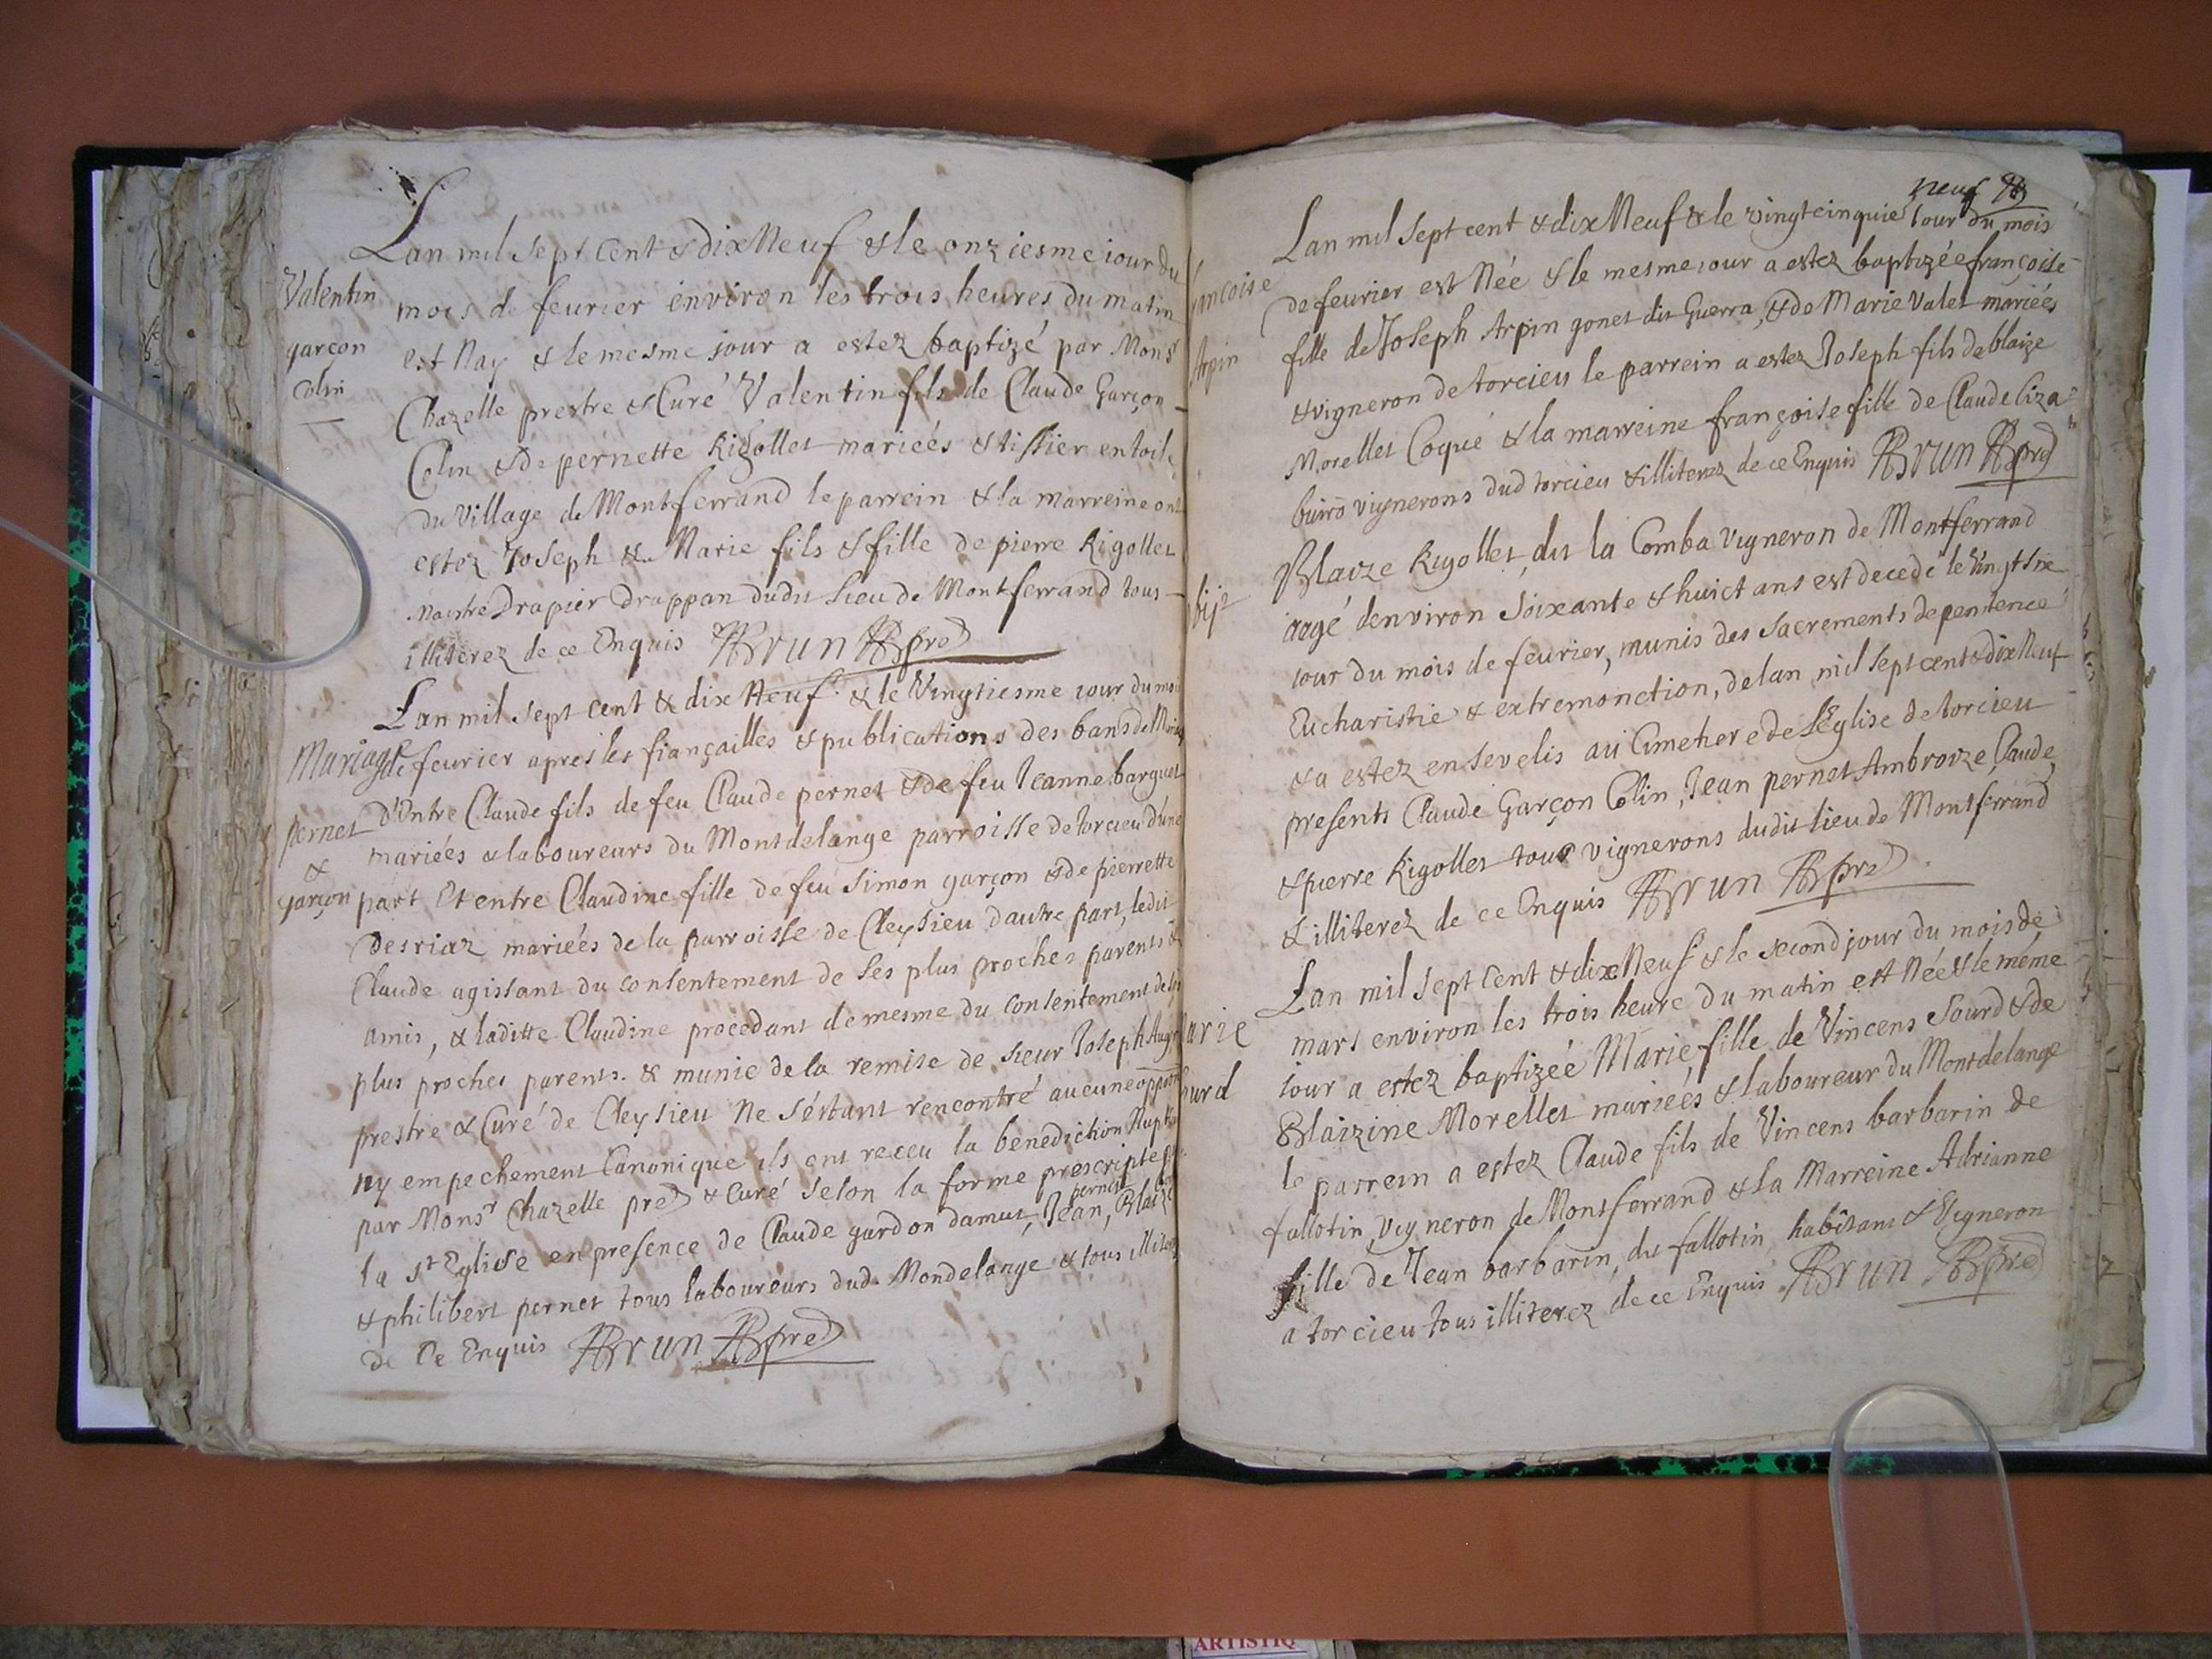 Lan mil sept cent & dix Neuf & le onziesme iour du
Valentin
garçon
Colin
mois de feurier environ les trois heures du matin
est Nay & le mesme jour a estez baptizé par Monsr
Chazelle prestre & Curé Valentin fils de Claude Garçon
Colin & de pernette Rigollet marieés & tissier en toile
du Village de Montferrand le parrein & la marreine ont
estez Joseph & Marie fils & fille de pierre Rigollet
maistre Drapier drappan dudit lieu de Montferrand tous
illiterez de ce Enquis Brun pre
Lan mil sept cent & dix Neuf & le Vingtiesme iour du mois
Mariage
pernet
&
garçon
de feurier apres les fiançailles & publications des bans de
d'Entre Claude fils de feu Claude pernet & de feu Jeanne barquet
mariées & laboureurs du Montdelange parroisse de torcieu d'une
part Et entre Claudine fille de feu Simon garçon & de pierrette
Desriaz marieés de la parroisse de Cleysieu d'autre part, ledit
Claude agissant du consentement de ses plus proches parents &
amis, & laditte Claudine procedant de mesme du consentement de ses
plus proches parents. & munie de la remise de sieur Joseph
prestre & Curé de Cleysieu Ne s'éstant rencontré aucune
ny empechement Canonique ils ont receu la benediction
par Monsr Chazelle pre & Curé selon la forme prescripte
la St Eglise en presence de Claude gardon damut, Jean, pernet Blaize
& philibert pernet tous laboureurs dud. Mondelange & tous
de Ce Enquis Brun pre
neuf
Lan mil sept cent & dix Neuf & le vingtcinquie iour du mois
ancoise
Arpin
de feurier est Née & le mesme iour a estez baptizée françoise
fille de Joseph Arpin gonet dit Guerra, & de Marie Valet marieés
& vigneron de torcieu le parrein a estez Joseph fils de blaize
Morellet Coqué & la marreine françoise fille de Claude liza
buiro vignerons dud torcieu & illiterez de ce Enquis Brun pre
Blaize Rigollet, dit la Comba Vigneron de Montferrand
aagé denviron soixante & huict ans est decedé le Vingt six
iour du mois de feurier, munis des sacrements de penitence
Eucharistie & extremonction, de lan mil sept cent & dix Neuf
& a estez ensevelis au Cimetiere de l'Eglise de torcieu
presents Claude Garçon Colin, Jean pernet Ambroize, Claude
& pierre Rigollet tous vignerons dudit lieu de Montferrand
& illiterez de ce Enquis Brun pre
Lan mil sept cent & dix Neuf & le second jour du mois de
arie
ourd
mars environ les trois heure du matin est Née & le même
iour a estez baptizeé Marie, fille de Vincens Sourd & de
Blaizine Morellet marieés & laboureur du Montdelange
le parrein a estez Claude fils de Vincens barbarin de
fallotin, Vigneron de Montferrand & la Marreine Adrianne
fille de Jean barbarin, dit fallotin habitant & Vigneron
a torcieu tous illiterez de ce Enquis Brun pre
ARTISTIQ